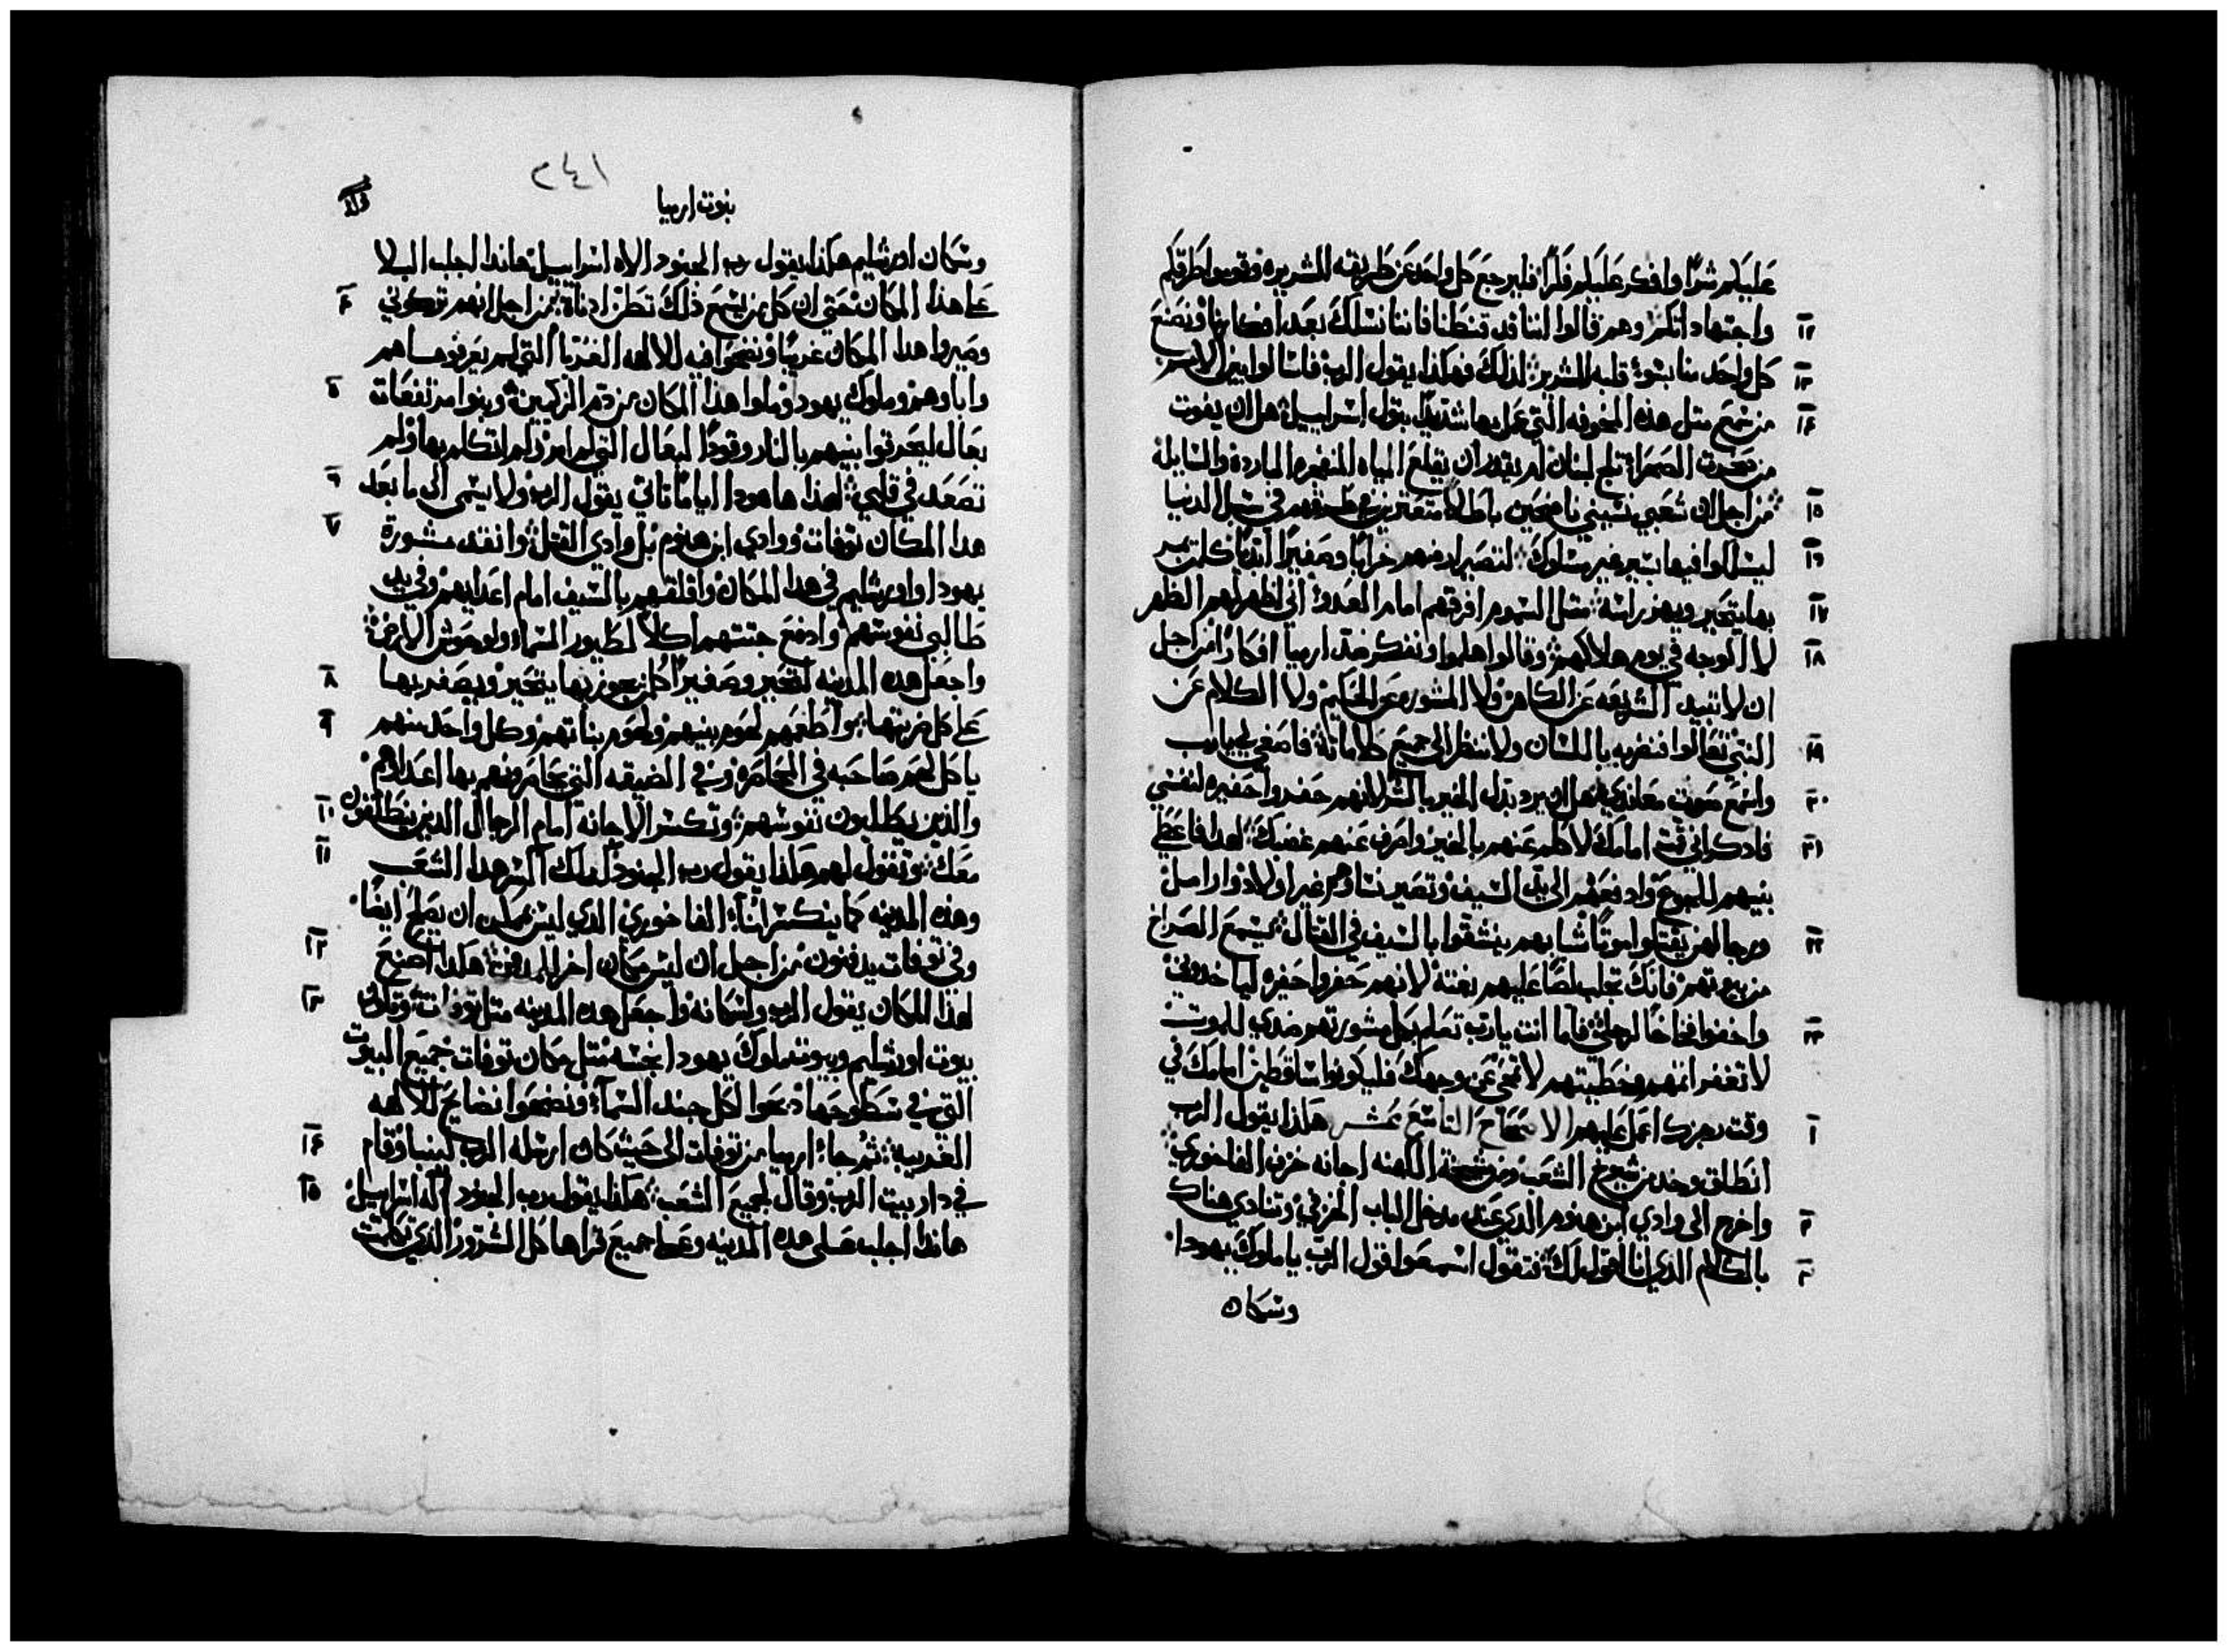 عليكم شرًا وافكر عليكم فكرًا فليرجع كل واحد عن طريقه الشريره وقوموا طرقكم
١٢ واجتهاداتكم وهم قالوا اننا قد قنطنا فاننا نسلك بعد افكارنا ونصنع
١٣ كل واحد منا بسوء قلبه الشرير لذلك فهكذا يقول الرب فاسالوا بين الامم
١٤ من سمع مثل هذه المخوفه التي عمل بها شديدًا بتول اسراييل هل ان يفوت
من صخرة الصحراء ثلج لبنان او يقدر ان يقلع المياه المنفجره الباردة والسايلة
١٥ من اجل ان شعبي نسيني ناضحين باطلًا متعترين في طرقهم في سبل الدنيا
١٦ ليسلكوا فيها بسير غير مسلوك لتصير ارضهم خرابًا وصفيرًا ابديًا كلمن يمر
١٧ بها يتحير ويهز راسه مثل السموم افرقهم امام العدو اني اظهر لهم الظهر
١٨ لا الوجه في يوم هلاكهم وقالوا هلموا ونفكر ضد ارميا افكارًا من اجل
ان لا تبيد الشريعه عن الكاهن ولا المشوره عن الحكيم ولا الكلام عن
١٩ النبي تعالوا فنضربه باللسان ولا ننظر الى جميع كلاماته فاصغي لي يا رب
٢٠ واسمع صوت معاندي هل ان يرد بدل الخير بالشر لانهم حفروا حفيره لنفسي
٢١ فادكر اني قمت امامك لاكلم عنهم بالخير واصرف عنهم غضبك لهدا فاعطي
بنيهم للجوع وادفعهم الى يد السيف وتصير نساوهم غير اولاد وارامل
٢٢ ورجالهن يقتلوا موتًا شابهم ينشقوا بالسيف في القتال يسمع الصراخ
من بيوتهم فانك تجلب لصًا عليهم بغتة لانهم حفروا حفيره لياخدوني
٢٣ واخفوا فخاخًا لرجلي فاما انت يا رب تعلم كل مشورتهم ضدي للموت
لا تغفر اثمهم وخطيتهم لا تمحى عن وجهك فليكونوا ساقطين امامك في
١ وقت رجزك اعمل عليهم الاصحاح التاسع عشر هكذا يقول الرب
انطلق وخد من شيوخ الشعب ومن شيخة الكهنه اجانه خزف الفاخوري
٢ واخرج الى وادي ابن هنوم الذي عند مدخل الباب الخزفي وتنادي هناك
٣ بالكلام الذي انا اقول لك فتقول اسمعوا قول الرب يا ملوك يهودا
وسكان
٢٤١
نبوت ارميا
وسكان اورشليم هكذا يقول رب الجنود الاه اسراييل هانذا اجلب البلا
٤ على هذا المكان حتى ان كل من يسمع ذلك تطن ادناة من اجل انهم تركوني
وصيروا هدا المكان غريبًا ونضحوا فيه للالهه الغربا التي لم يعرفوها هم
٥ واباوهم وملوك يهودا وملوا هدا المكان من دم الزكيين وبنوا مرتفعات
بعال ليحرقوا بنيهم بالنار وقودًا لبعال التي لم امر ولم اتكلم بها ولم
٦ تصعد في قلبي لهذا ها هودا ايامًا تاتي يقول الرب ولا يسمى الى ما بعد
٧ هدا المكان توفات ووادي ابن هنوم بل وادي القتل وانقد مشورة
يهودا واورشليم في هدا المكان واقلقهم بالسيف امام اعدايهم وفي يد
طالبي نفوسهم وادفع جثتهم اكلًا لطيور السماء ولوحوش الارض
٨ واجعل هده المدينه لتحير وصفيرًا كل من يجوز بها يتحير ويصفر بها
٩ على كل ضربتها واطعمهم لحوم بنيهم ولحوم بناتهم وكل واحد منهم
ياكل لحم صاحبه في المحاصرة وفي الضيقه التي يحاصرونهم بها اعداوهم
١٠ والذين يطلبون نفوسهم وتكسر الاجانه امام الرجال الدين ينطلقون
١١ معك وتقول لهم هكذا يقول رب الجنود كدلك اكسر هدا الشعب
وهذه المدينه كما ينكسر اناء الفاخوري الذي ليس يمكن ان يصلح ايضًا
١٢ وفي توفات يدفنون من اجل ان ليس مكان اخر للدفن هكدا اصنع
١٣ لهذا المكان يقول الرب ولسكانه واجعل هده المدينه مثل توفات وتكون
بيوت اورشليم وبيوت ملوك يهودا نجسه مثل مكان توفات جميع البيوت
التي في سطوحها دبحوا لكل جند السماء ونضحوا نضايح للالهه
١٤ الغريبه ثم جاء ارميا من توفات الى حيث كان ارسله الرب ليتنبا وقام
١٥ في دار بيت الرب وقال لجميع الشعب هكذا يقول رب الجنود اله اسراييل
هاندا اجلب على هده المدينه وعلى جميع قراها كل الشرور الذي تكلمت